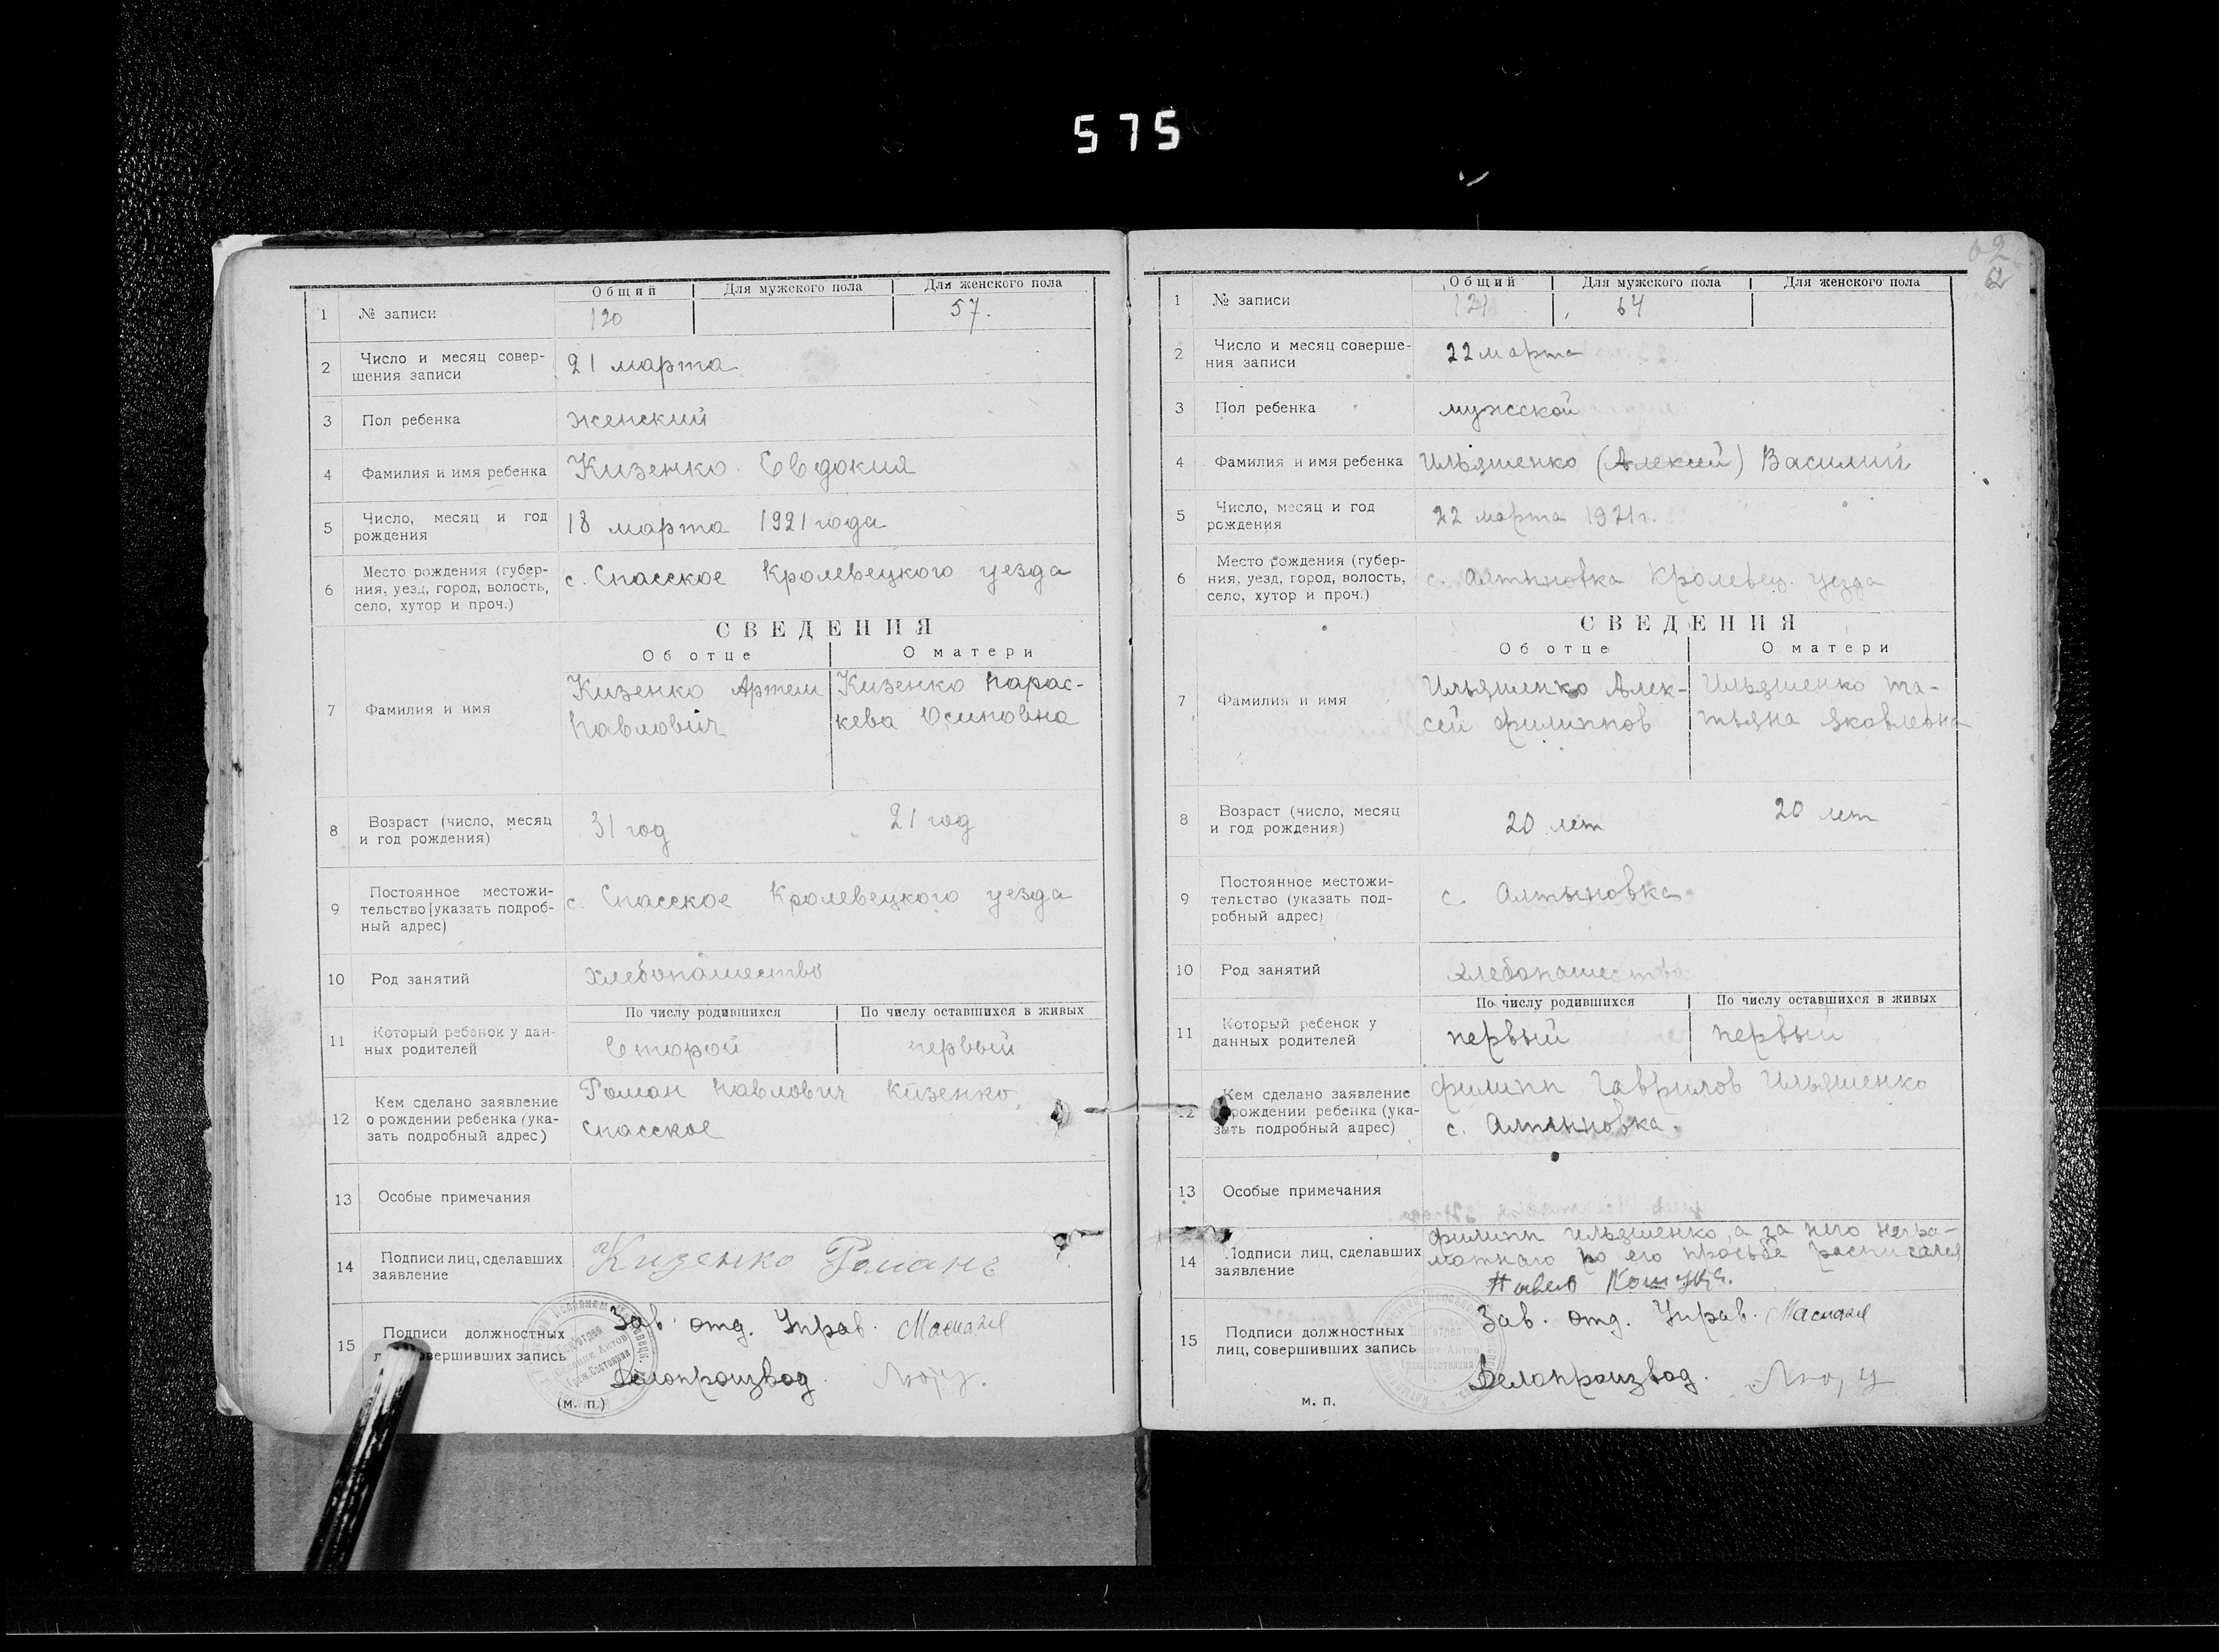 575
Общий Для мужского пола Для женского пола
1 № записи 120 57.
2 Число и месяц совер-
шения записи
21 марта
3 Пол ребенка женский
4 Фамилия и имя ребенка Кизенко Евдокия
5 Число, месяц и год
рождения
18 марта 1921 года
6 Место рождения (губер-
ния, уезд, город, волость,
село, хутор и проч.)
с. Спасское Кролевецкого уезда
СВЕДЕНИЯ
Об отце О матери
7 Фамилия и имя
Кизенко Артем Кизенко Парас-
Павлович кева Осиповна
8 Возраст (число, месяц
и год рождения)
31 год 21 год
9 Постоянное местожи-
тельство [указать подроб-
ный адрес)
с. Спасское Кролевецкого уезда
10 Род занятий хлебопашество
По числу родившихся По числу оставшихся в живых
11 Который ребенок у дан-
ных родителей
Второй первый
12 Кем сделано заявление
о рождении ребенка (ука-
зать подробный адрес)
Роман Павлович Кизенко,
Спасское
13 Особые примечания
14 Подписи лиц, сделавших
заявление
Кизенко Романъ
15 Подписи должностных
совершивших запись
Зав. отд. Управ.
Делопроизвод.
(м. п.)
62
62
Общий Для мужского пола Для женского пола
1 № записи 121 64
2 Число и месяц соверше-
ния записи
22 марта
3 Пол ребенка мужской
4 Фамилия и имя ребенка Ильяшенко (Алексей) Василий
5 Число, месяц и год
рождения
22 марта 1921 г.
6 Место рождения (губер-
ния, уезд, город, волость,
село, хутор и проч.)
с. Алтыновка Кролевец. уезда
СВЕДЕНИЯ
Об отце О матери
7 Фамилия и имя
Ильяшенко Алек- Ильяшенко Та-
сей Филиппов тьяна Яковлевна
8 Возраст (число, месяц
и год рождения)
20 лет 20 лет
9 Постоянное местожи-
тельство (указать под-
робный адрес)
с. Алтыновка
10 Род занятий хлебопашество
По числу родившихся По числу оставшихся в живых
11 Который ребенок у
данных родителей
первый первый
12 Кем сделано заявление
о рождении ребенка (ука-
зать подробный адрес)
Филипп Гаврилов Ильяшенко
с. Алтыновка.
13 Особые примечания
14 Подписи лиц, сделавших
заявление
Филипп Ильяшенко, а за него негра-
мотнаго по его просьбе расписался
15 Подписи должностных
лиц, совершивших запись
Зав. отд. Управ.
Делопроизвод.
м. п.